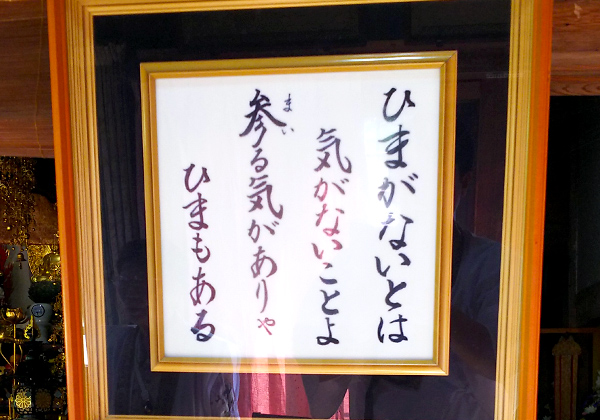 ひまがないとは
気がないことよ
参る気がありゃ
まい
ひまもある